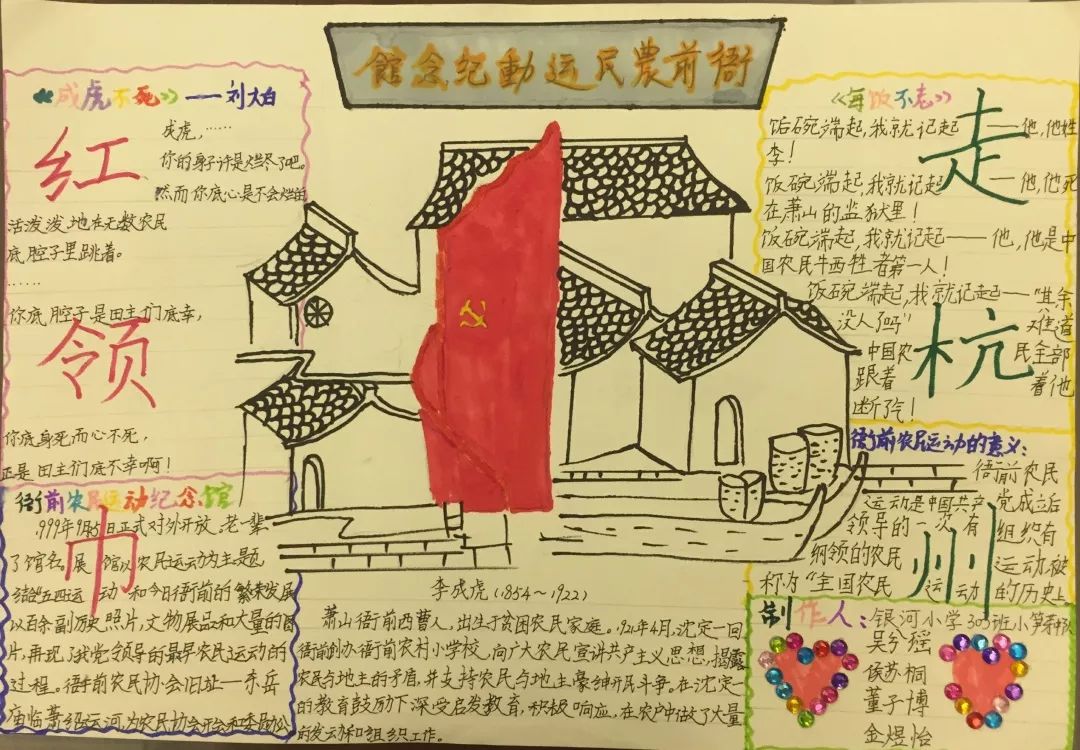 衙前農民运動纪念館
《成虎不死》——刘大白
成虎,……
你的身子许是烂尽了吧。
然而你底心是不会烂的
活泼泼地在无数农民
底腔子里跳着。
……
你底腔子是田主们底幸,
你底身死而心不死,
正是田主们底不幸啊!
红
领
巾
衙前农民运动纪念馆
日正式对外开放。老一辈
了馆名。展馆以农民运动为主题
结合五四运动和今日衙前的繁荣发展
以百余副历史照片,文物展品和大量的图
片,再现了我党领导的最早农民运动的
过程。衙前农民协会旧址—东岳
庙临萧绍运河,为农民协会开会和委员办公
李成虎(1854~1922)
萧山衙前西曹人,出生于贫困农民家庭。1921年4月,沈定一回
衙前创办衙前农村小学校,向广大农民宣讲共产主义思想,揭露
农民与地主的矛盾,并支持农民与地主豪绅开展斗争。在沈定一
的教育鼓励下深受启发教育,积极响应,在农户中做了大量
的发动和组织工作。
《每饭不忘》
饭碗端起,我就记起——他,他姓
李!
饭碗端起,我就记起——他,他死
在萧山的监狱里!
饭碗端起,我就记起——他,他是中
国农民牺牲者第一人!
饭碗端起,我就记起——"其余
没人了吗"难道
中国农民全部
跟着他
断了气!
走
杭
州
衙前农民运动的意义:
衙前农民
运动是中国共产党成立后
领导的一次有组织有
纲领的农民运动,被
称为"全国农民运动的历史上
制作人:银河小学303班小笋芽队
吴兮瑶
侯苏桐
董子博
金煜怡